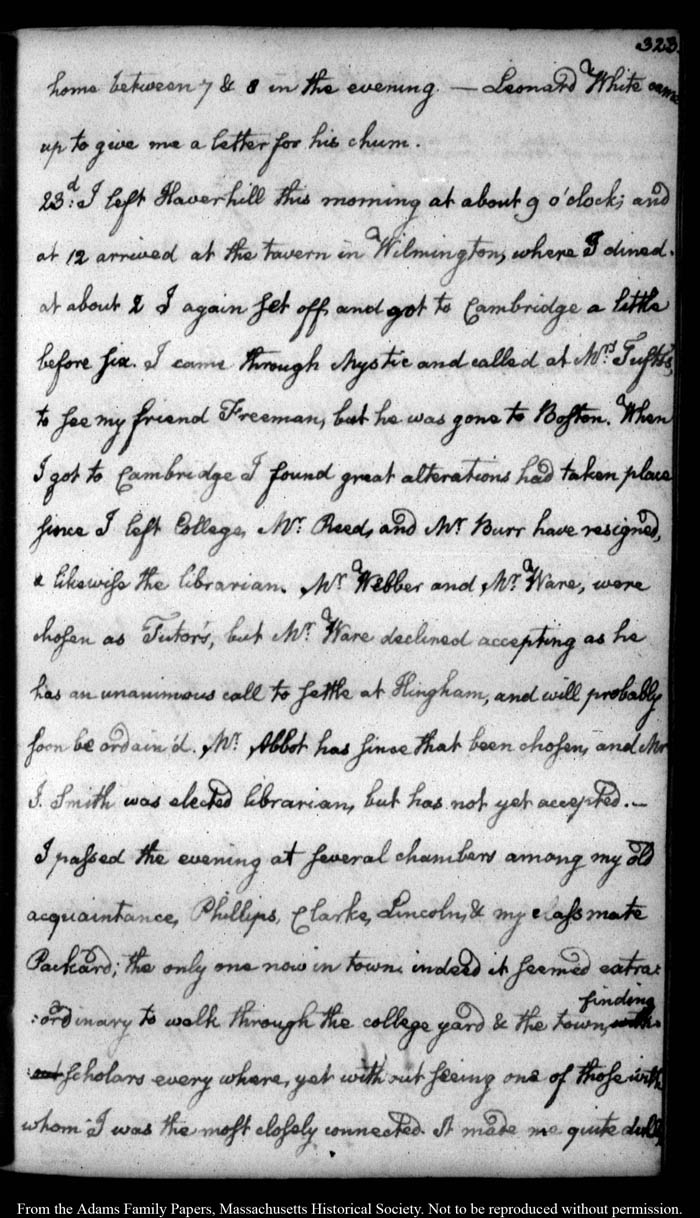 323.
home between 7 & 8 in the evening. — Leonard White came
up to give me a letter for his chum.
23d: I left Haverhill this morning at about 9 o'clock; and
at 12 arrived at the tavern in Wilmington, where I dined.
at about 2 I again set off, and got to Cambridge a little
before six. I came through Mystic and called at Mrs. Tufts's,
to see my friend Freeman, but he was gone to Boston. When
I got to Cambridge I found great alterations had taken place
since I left College, Mr. Reed, and Mr. Burr have resigned,
& likewise the librarian. Mr. Webber and Mr. Ware, were
chosen as Tutor's, but Mr. Ware declined accepting as he
has an unanimous call to settle at Hingham, and will probably
soon be ordain'd. Mr. Abbot has since that been chosen, and Mr
J. Smith was elected librarian, but has not yet accepted. —
I passed the evening at several chambers among my old
acquaintance, Phillips, Clarke, Lincoln, & my classmate
Packard; the only one now in town. indeed it seemed extra:
:ordinary to walk through the college yard & the town, finding
scholars every where, yet without seeing one of those with
whom I was the most closely connected. It made me quite dull,
From the Adams Family Papers, Massachusetts Historical Society. Not to be reproduced without permission.